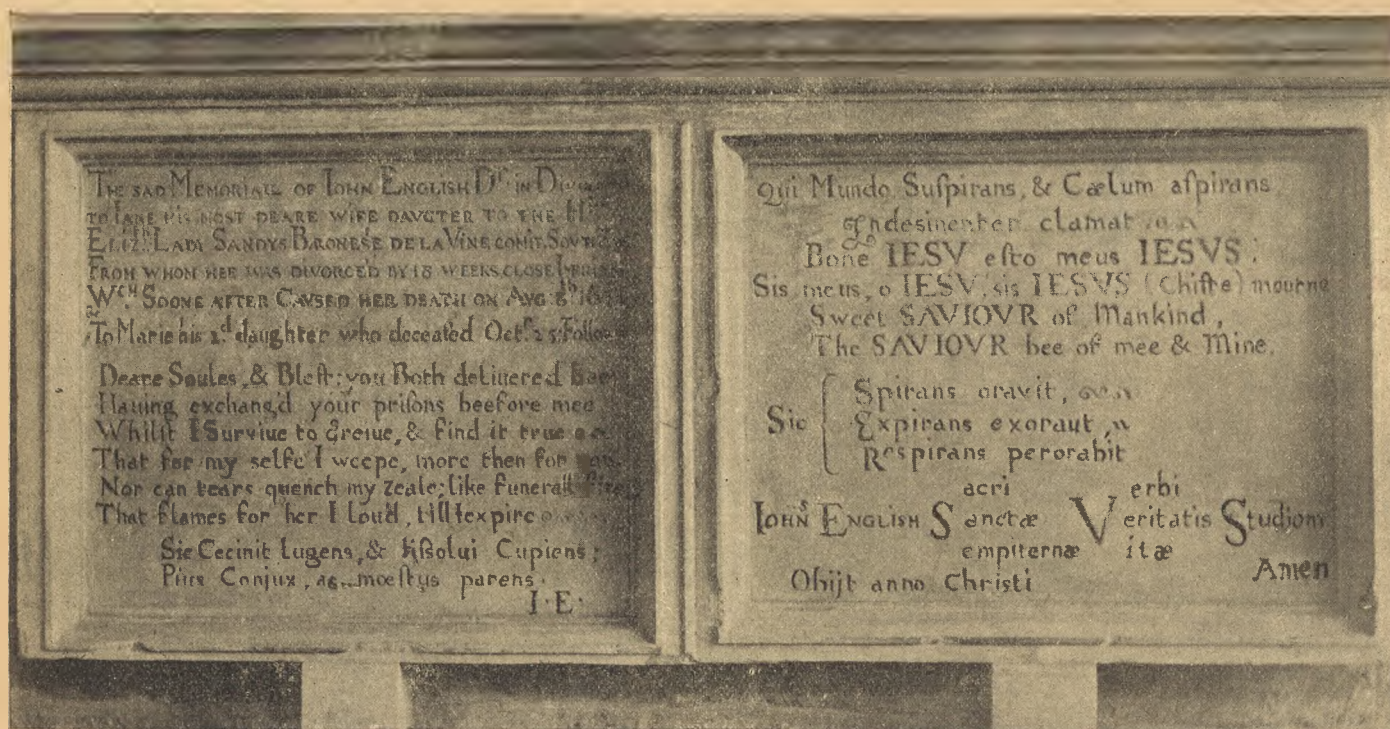 THE SAD MEMORIALL OF IOHN ENGLISH Dr IN
TO IANE HIS MOST DEARE WIFE DAVGTER TO THE
ELIZth LADY SANDYS BARONESSE DE LA VINE COMIT
FROM WHOM HEE WAS DIVORCED BY 18 WEEKS CLOSE
Wch SOONE AFTER CAVSED HER DEATH ON AVG 8th
To Marie his 2d daughter who deceased Octr 25
Deare Soules, & Blest; you Both deliuered
Hauing exchang'd your prisons beefore mee
Whilst I Suruiue to Greiue, & find it true
That for my selfe I weepe, more then for
Nor can tears quench my zeale; like funerall
That flames for her I lou'd, till I expire
Sic Cecinit Lugens, & dissolui Cupiens;
Pius Conjux, ac moestus parens.
I·E·
Qui Mundo Suspirans, & Cælum aspirans
Indesinenter clamat
Bone IESV esto meus IESVS:
Sis meus, o IESV, sis IESVS (Christe) mourne
Sweet SAVIOVR of Mankind,
The SAVIOVR bee of mee & Mine.
Spirans oravit,
Sic Expirans exoraut,
Respirans perorabit
acri erbi
IOHN ENGLISH S anctæ V eritatis
empiternæ itæ
Obijt anno Christi Amen